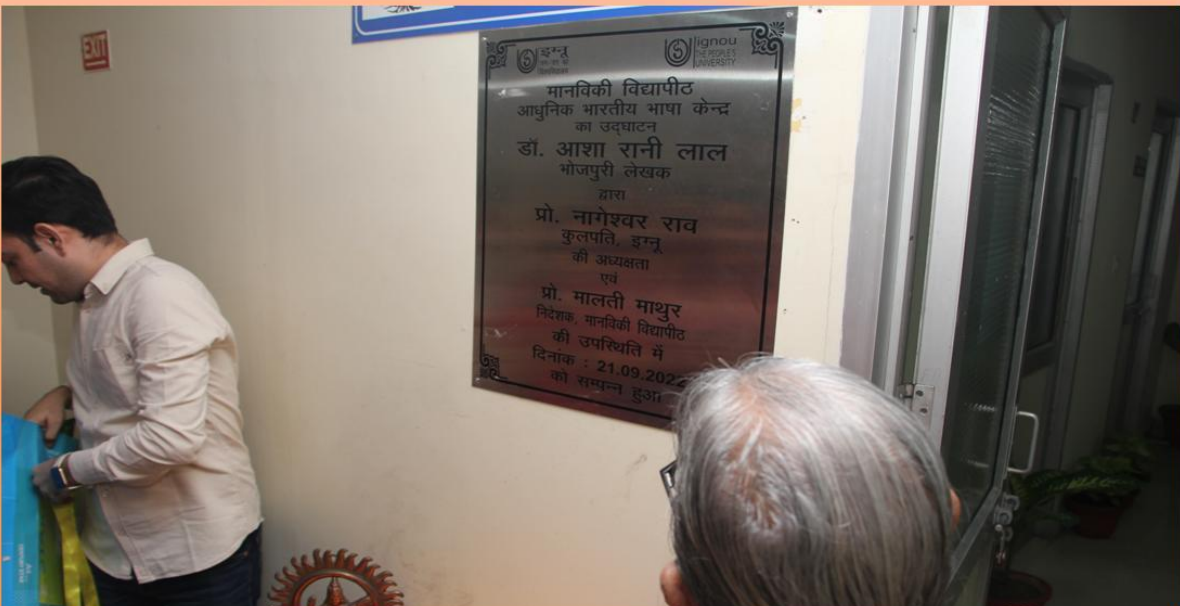 EXIT
इग्नू
ignou
THE PEOPLE'S
UNIVERSITY
मानविकी विद्यापीठ
आधुनिक भारतीय भाषा केन्द्र
का उद्घाटन
डॉ. आशा रानी लाल
भोजपुरी लेखक
द्वारा
प्रो. नागेश्वर राव
कुलपति, इग्नू
की अध्यक्षता
एवं
प्रो. मालती माथुर
निदेशक, मानविकी विद्यापीठ
की उपस्थिति में
दिनांक : 21.09.2022
को सम्पन्न हुआ